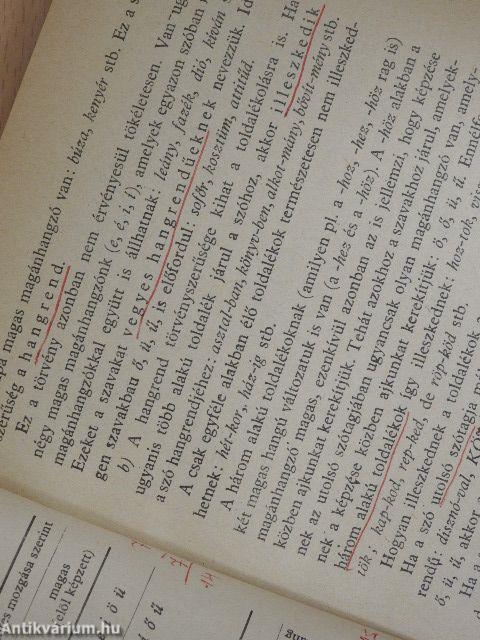 magas magánhangzó van: búza, kenyér stb. Ez a s
szerűség a hangrend.
Ez a törvény azonban nem érvényesül tökéletesen. Van
négy magas magánhangzónk (e, é, i, í), amelyek egyazon szóban
magánhangzókkal együtt is állhatnak: leány, fazék, dió, kíván
Ezeket a szavakat vegyes hangrendűeknek nevezzük. Id
gen szavakban ö, ü, ű, is előfordul: sofőr, kosztüm, attitűd.
b) A hangrend törvényszerűsége kihat a toldalékolásra is. Ha
ugyanis több alakú toldalék járul a szóhoz, akkor illeszkedik
a szó hangrendjéhez: asztal-ban, könyv-ben, alkot-mány, bővít-mény stb.
A csak egyféle alakban élő toldalékok természetesen nem illeszked-
hetnek: hét-kor, ház-ig stb.
A három alakú toldalékoknak (amilyen pl. a -hoz, -hez, -höz rag is)
két magas hangú változatuk is van (a -hez és a -höz). A -höz alakban a
magánhangzó magas, ezenkívül azonban az is jellemzi, hogy képzése
közben ajkunkat kerekítjük. Tehát azokhoz a szavakhoz járul, amelyek-
nek az utolsó szótagjában ugyancsak olyan magánhangzó van, amely-
nek a képzése közben ajkunkat kerekítjük: ö, ő, ü, ű.
három alakú toldalékok így illeszkednek: hoz-tok,
tök; kap-kod, rep-ked, de röp-köd stb.
Hogyan illeszkednek a toldalékok
Ha a szó utolsó szótagja
rendű: disznó-val,
ő, ü, ű, akkor
Ha
mozgása szerint
magas
képzett)
ö ü
ő ű
Antikvárium.hu